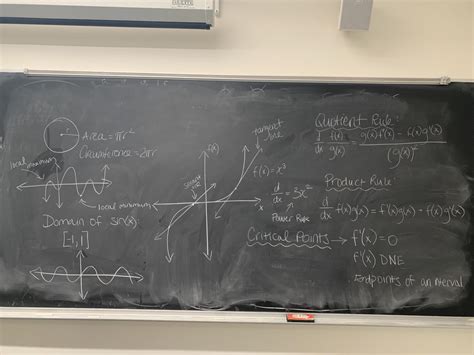 Area = πr²
Circumference = 2πr
local
maximum
local minimum
Domain of sin(x)
[-1, 1]
f(x)
tangent
line
secant
line
f(x) = x³
d/dx = 3x²
x
Power Rule
Quotient Rule:
d/dx f(x)/g(x) = g(x)f'(x) - f(x)g'(x)
(g(x))²
Product Rule:
d/dx f(x)g(x) = f'(x)g(x) - f(x)g'(x)
Critical Points → f'(x) = 0
f'(x) DNE
Endpoints of an interval